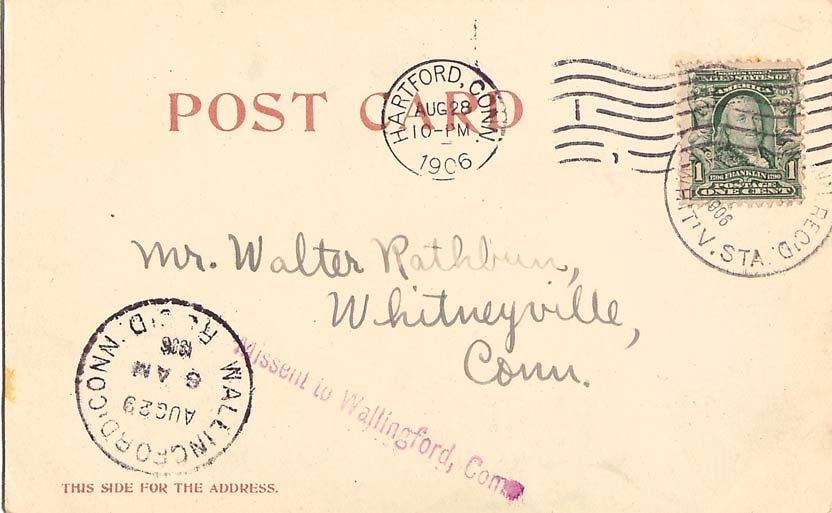 POST CARD
HARTFORD, CONN.
AUG 28
10-PM
1906
SERIES 1902
UNITED STATES OF
AMERICA
1 1706 FRANKLIN 1790 1
POSTAGE
ONE CENT
WHIT'V. STA. REC'D
1906
Mr. Walter Rathbun,
Whitneyville,
Conn.
WALLINGFORD, CONN. REC'D
AUG 29
6 AM
1906
Missent to Wallingford, Conn.
THIS SIDE FOR THE ADDRESS.